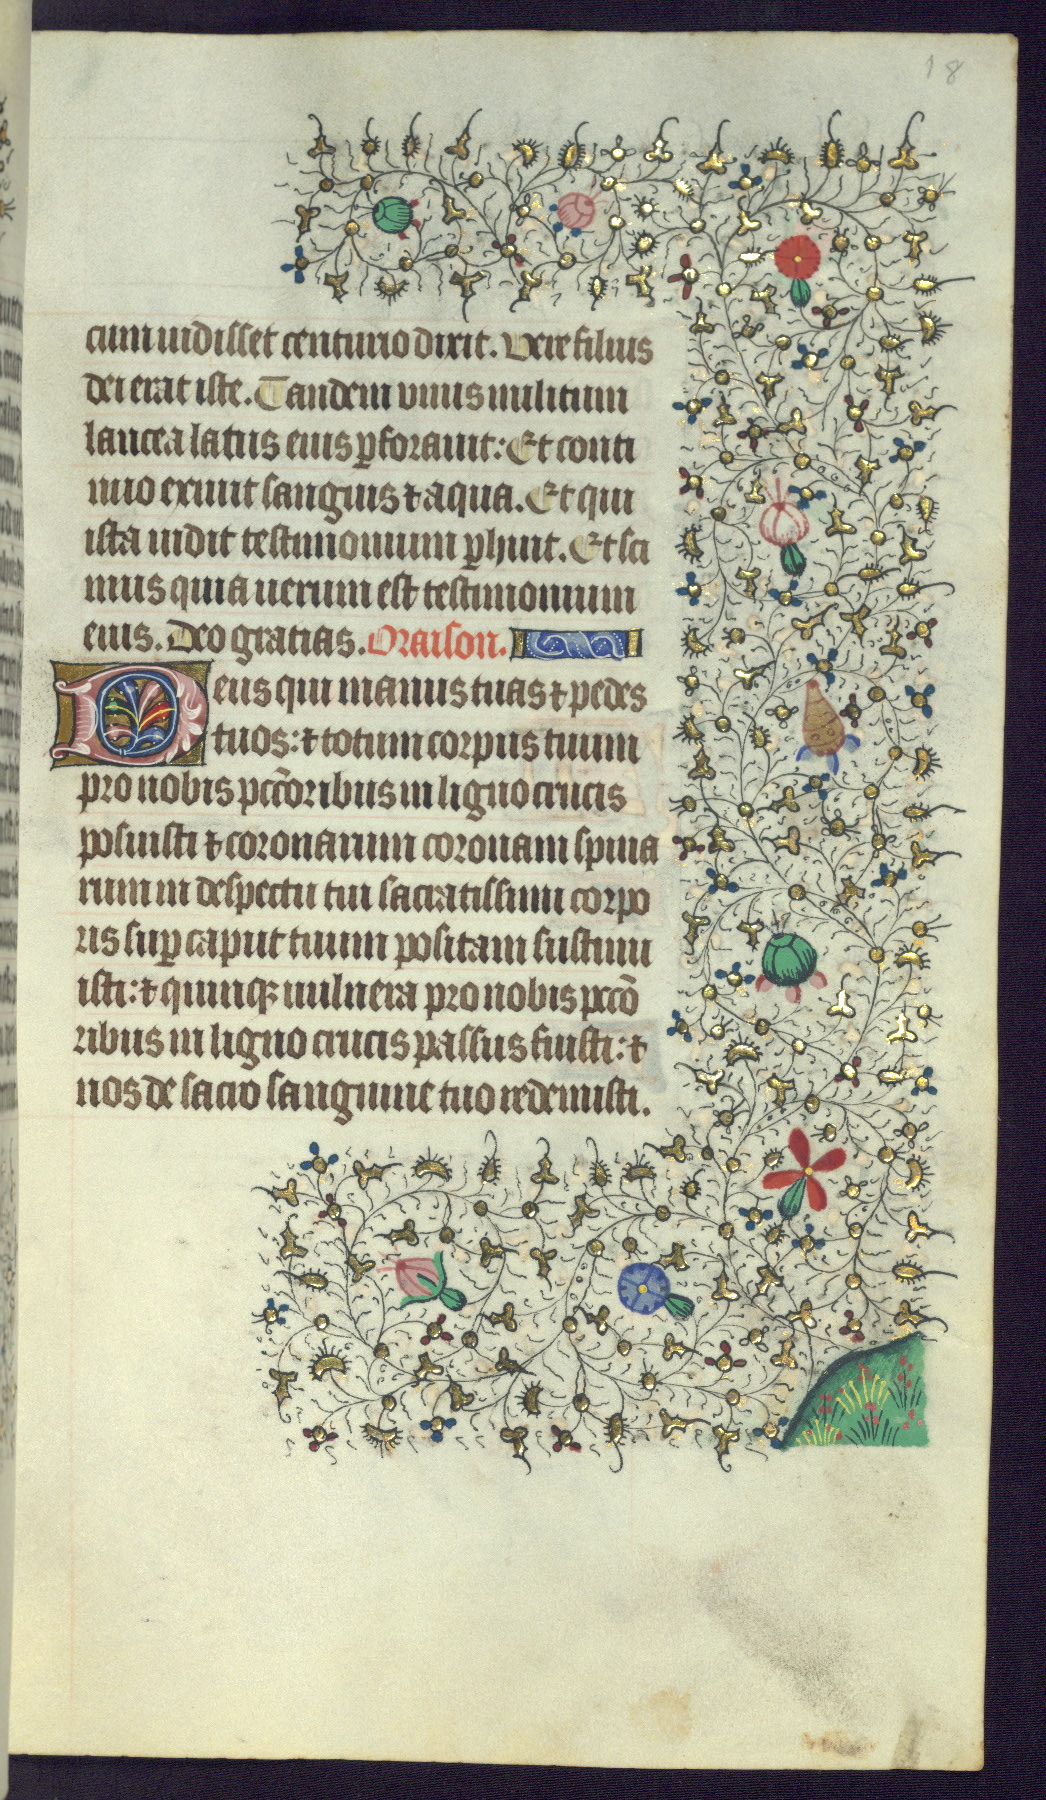 18
cum uidisset centurio dixit. Vere filius
dei erat iste. Tandem vnus militum
lancea latus eius ꝑforauit: Et conti
nuo exiuit sanguis ⁊ aqua. Et qui
ista uidit testimonium ꝑhiuit. Et sci
mus quia uerum est testimonium
eius. Deo gratias. Oraison.
Deus qui manus tuas ⁊ pedes
tuos: ⁊ totum corpus tuum
pro nobis pcc̄oribus in ligno crucis
posuisti ⁊ coronarum coronam spina
rum in despectu tui sacratissimi corpo
ris suꝑ caput tuum positam sustinu
isti: ⁊ quinqꝫ uulnera pro nobis pccō
ribus in ligno crucis passus fuisti: ⁊
nos de sacro sanguine tuo redemisti.